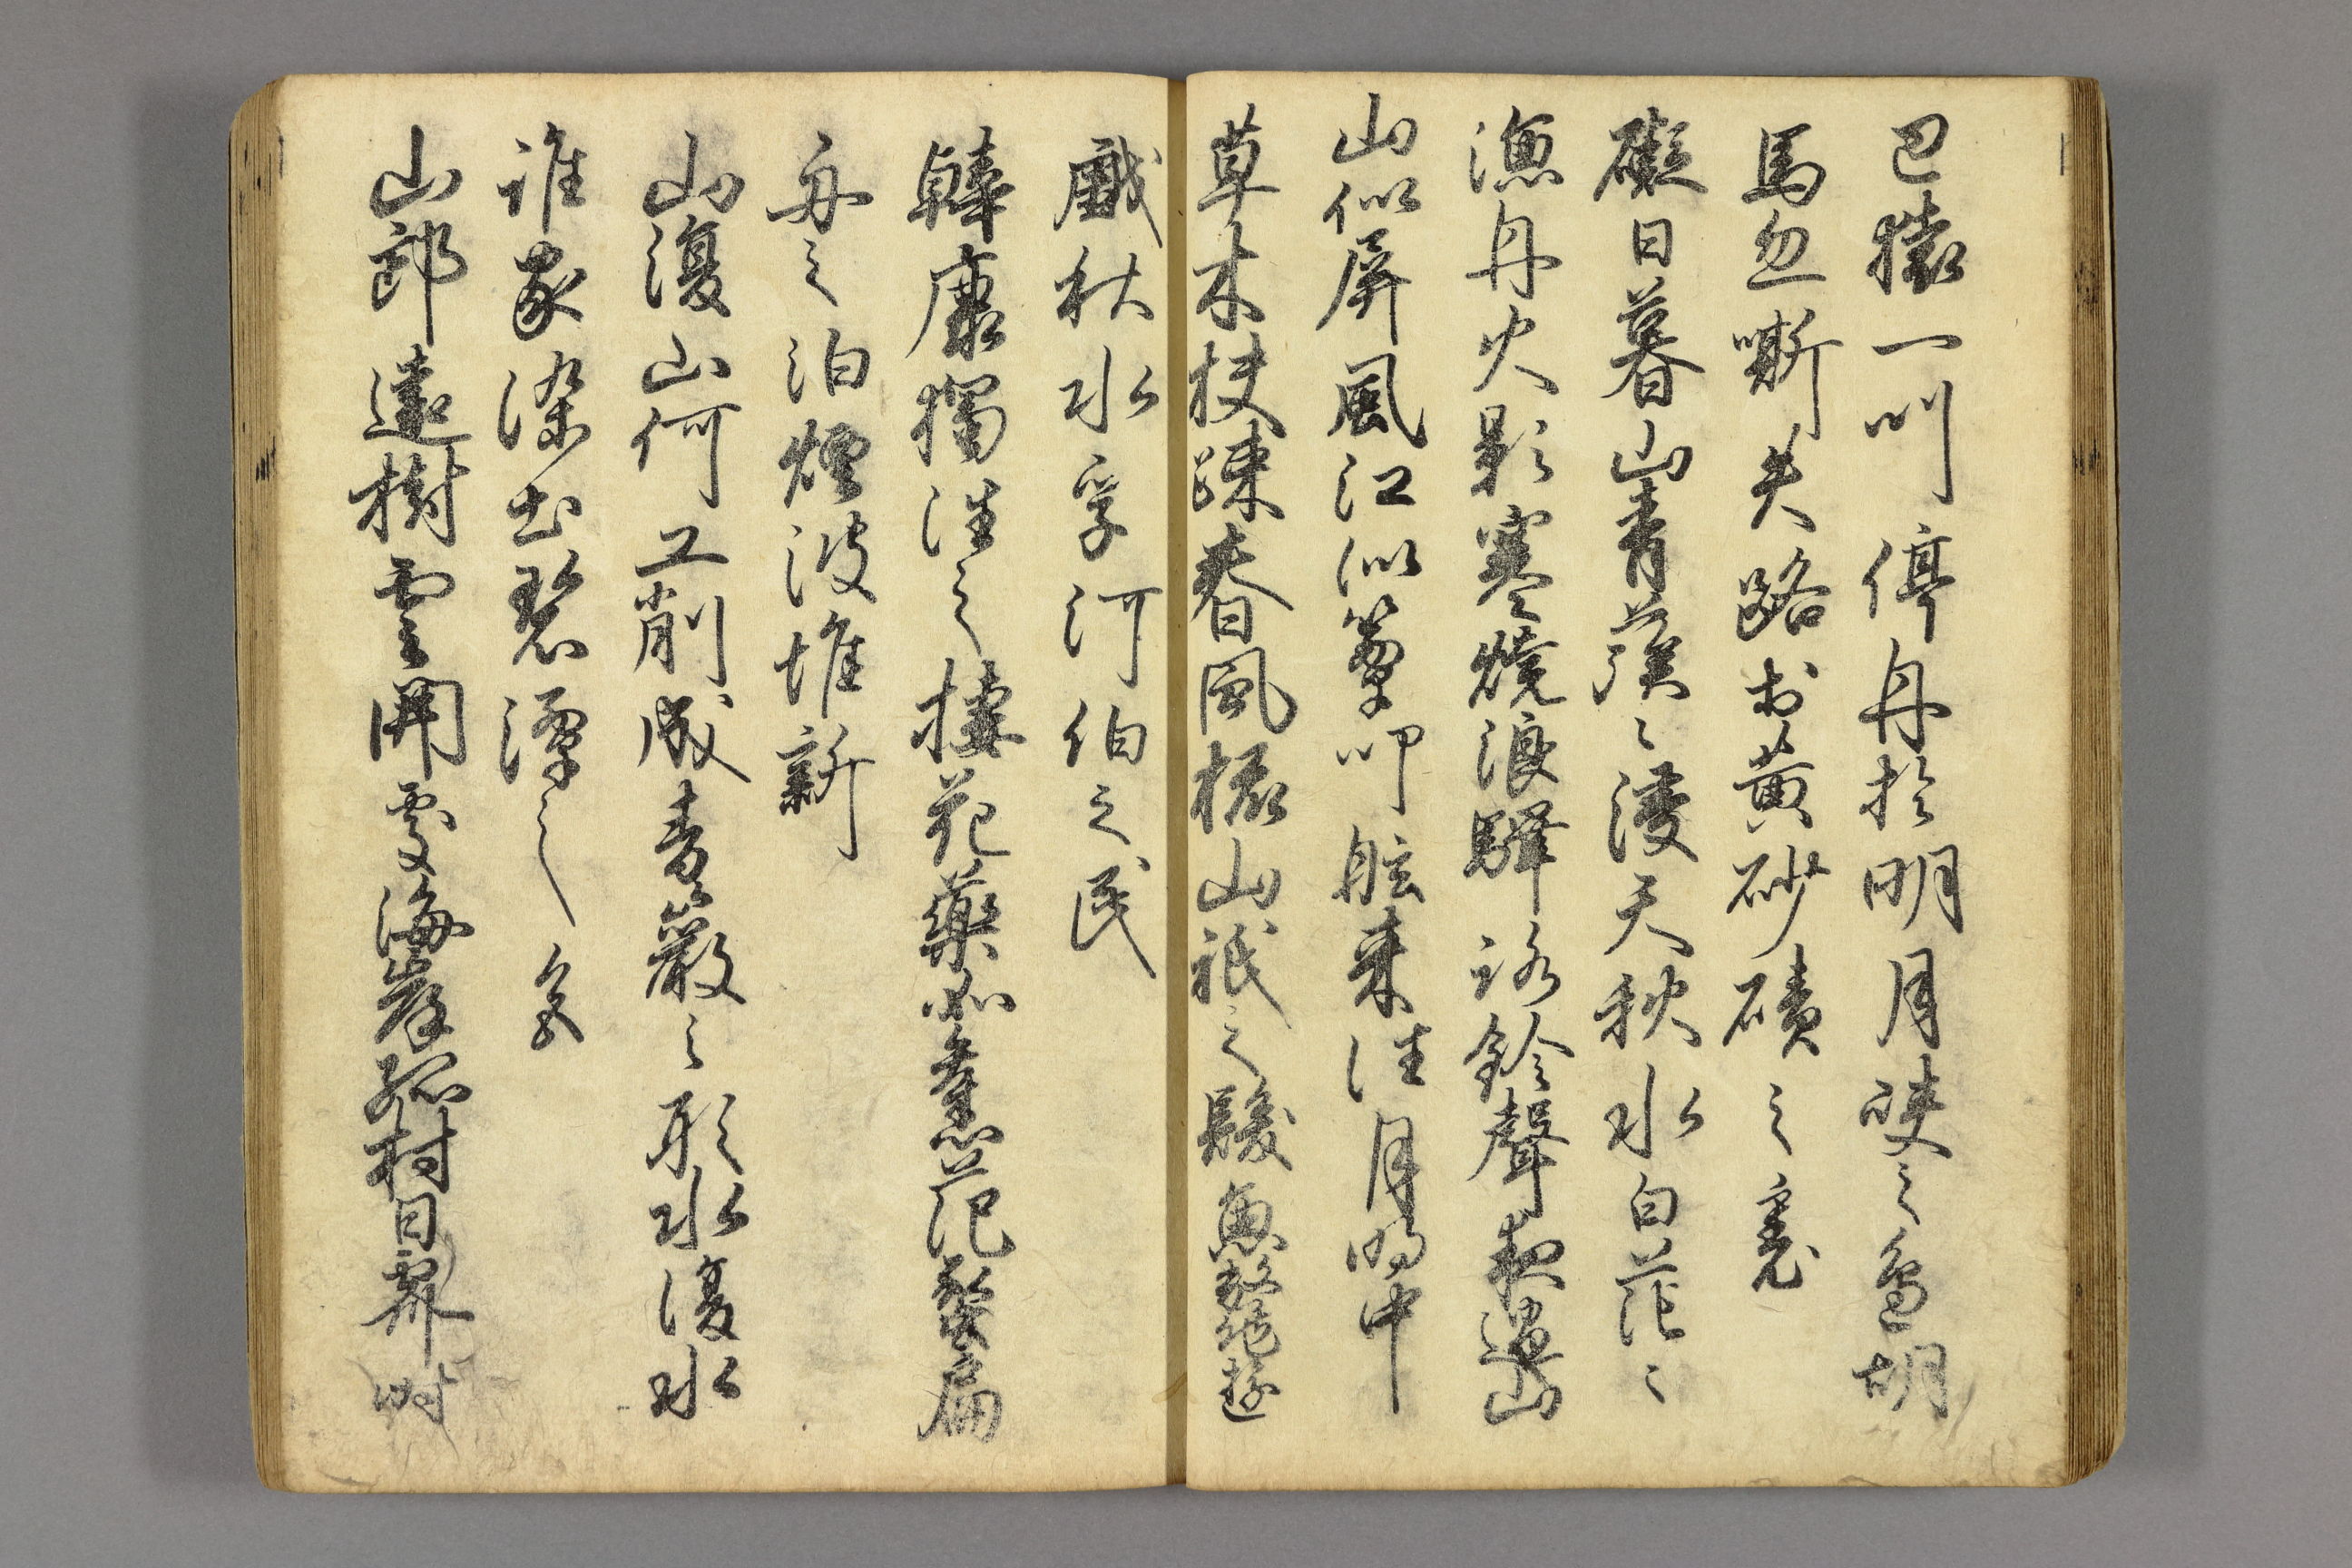 巴猿一叫停舟於明月峡之邊胡
馬忽嘶失路於黄砂磧之裏
礙日暮山青蔟々浸天秋水白茫々
漁舟火影寒燒浪驛路鈴聲夜過山
山似屏風江似簟叩舷来往月明中
草木扶疎春風梳山祇之髪魚鼈遊
戯秋水字河伯之民
韓康獨往之棲花藥如舊范蠡扁
舟之泊煙波惟新
山復山何工削成青巖之形水復水
誰家染出碧潭之色
山郵遠樹雲開處海岸孤村日霽時